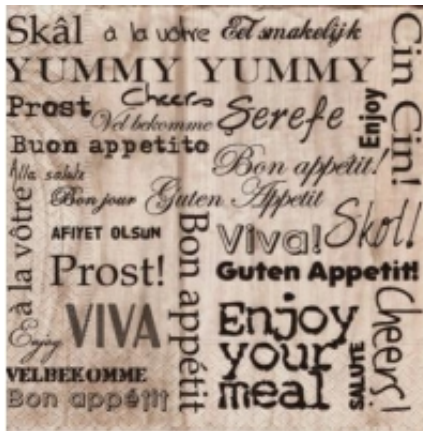 Skâl à la vôtre Eet smakelijk
YUMMY YUMMY
Cin Cin!
Prost Cheers Şerefe Enjoy
Vel bekomme
Buon appetito
Bon appétit!
Alla salute
Bon jour Guten Appetit
à la vôtre
AFIYET OLSUN
Bon appétit
Viva! Skol!
Prost!
Guten Appetit!
Enjoy
VIVA
Enjoy
your
meal
SALUTE
Cheers!
VELBEKOMME
Bon appétit